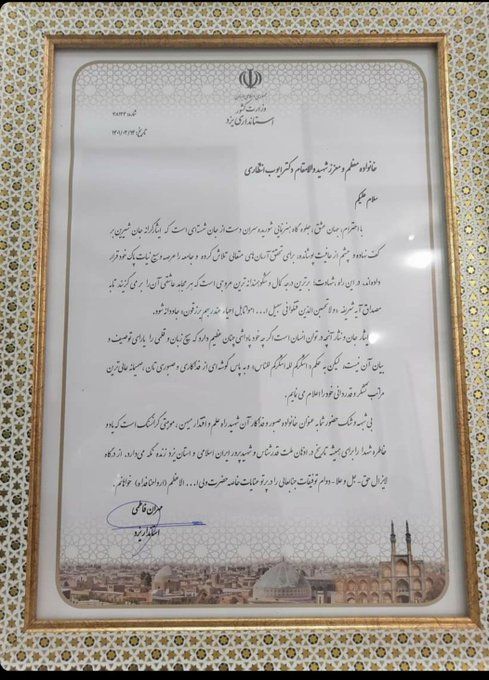 جمهوری اسلامی ایران
وزارت کشور
استانداری یزد
شماره: ۲۸۲۴۴
تاریخ: ۱۴۰۱/۰۳/۲۳
خانواده معظم و معزز شهید والامقام دکتر ایوب انتظاری
سلام علیکم
با احترام، جهان عشق، جلوه گاه هنرنمایی شوریده سران دست از جان شسته‌ای است که ایثارگرانه جان شیرین بر
کف نهاده و چشم از عافیت پوشانده، برای تحقق آرمان‌های متعالی تلاش کرده و جامعه را مرصد وسیع نیات پاک خود قرار
داده‌اند. در این راه، شهادت؛ برترین درجه کمال و شکوهمندانه ترین عروجی است که هر مجاهد عاشقی آن را بر می گزیند تا به
مصداق آیه شریفه «ولا تحسبن الذین قتلوا فی سبیل ا... امواتا بل احیاء عند ربهم یرزقون» جاودانه شود.
ایثار جان و نثار آنچه در توان انسان است، اگرچه خود پاداشی چنان عظیم دارد که هیچ زبان و قلمی را یارای توصیف و
بیان آن نیست، لیکن به حکم «اشکرکم لله اشکرکم للناس» و به پاس گوشه‌ای از فداکاری و صبوری تان، صمیمانه عالی ترین
مراتب تشکر و قدردانی خود را اعلام می نمایم.
بی شبهه و شک حضور شما به عنوان خانواده صبور و فداکار آن شهید راه علم و اقتدار میهن، موهبتی گرانسنگ است که یاد و
خاطره شهدا را برای همیشه تاریخ در اذهان ملت قدرشناس و شهیدپرور ایران اسلامی و استان یزد زنده نگه می‌دارد. از درگاه
لایزال حق -جل و علا- دوام توفیقات جنابعالی را در پرتو عنایات خاصه حضرت ولی ا... الاعظم (ارواحنا فداه) خواهانم.
مهران فاطمی
استاندار یزد